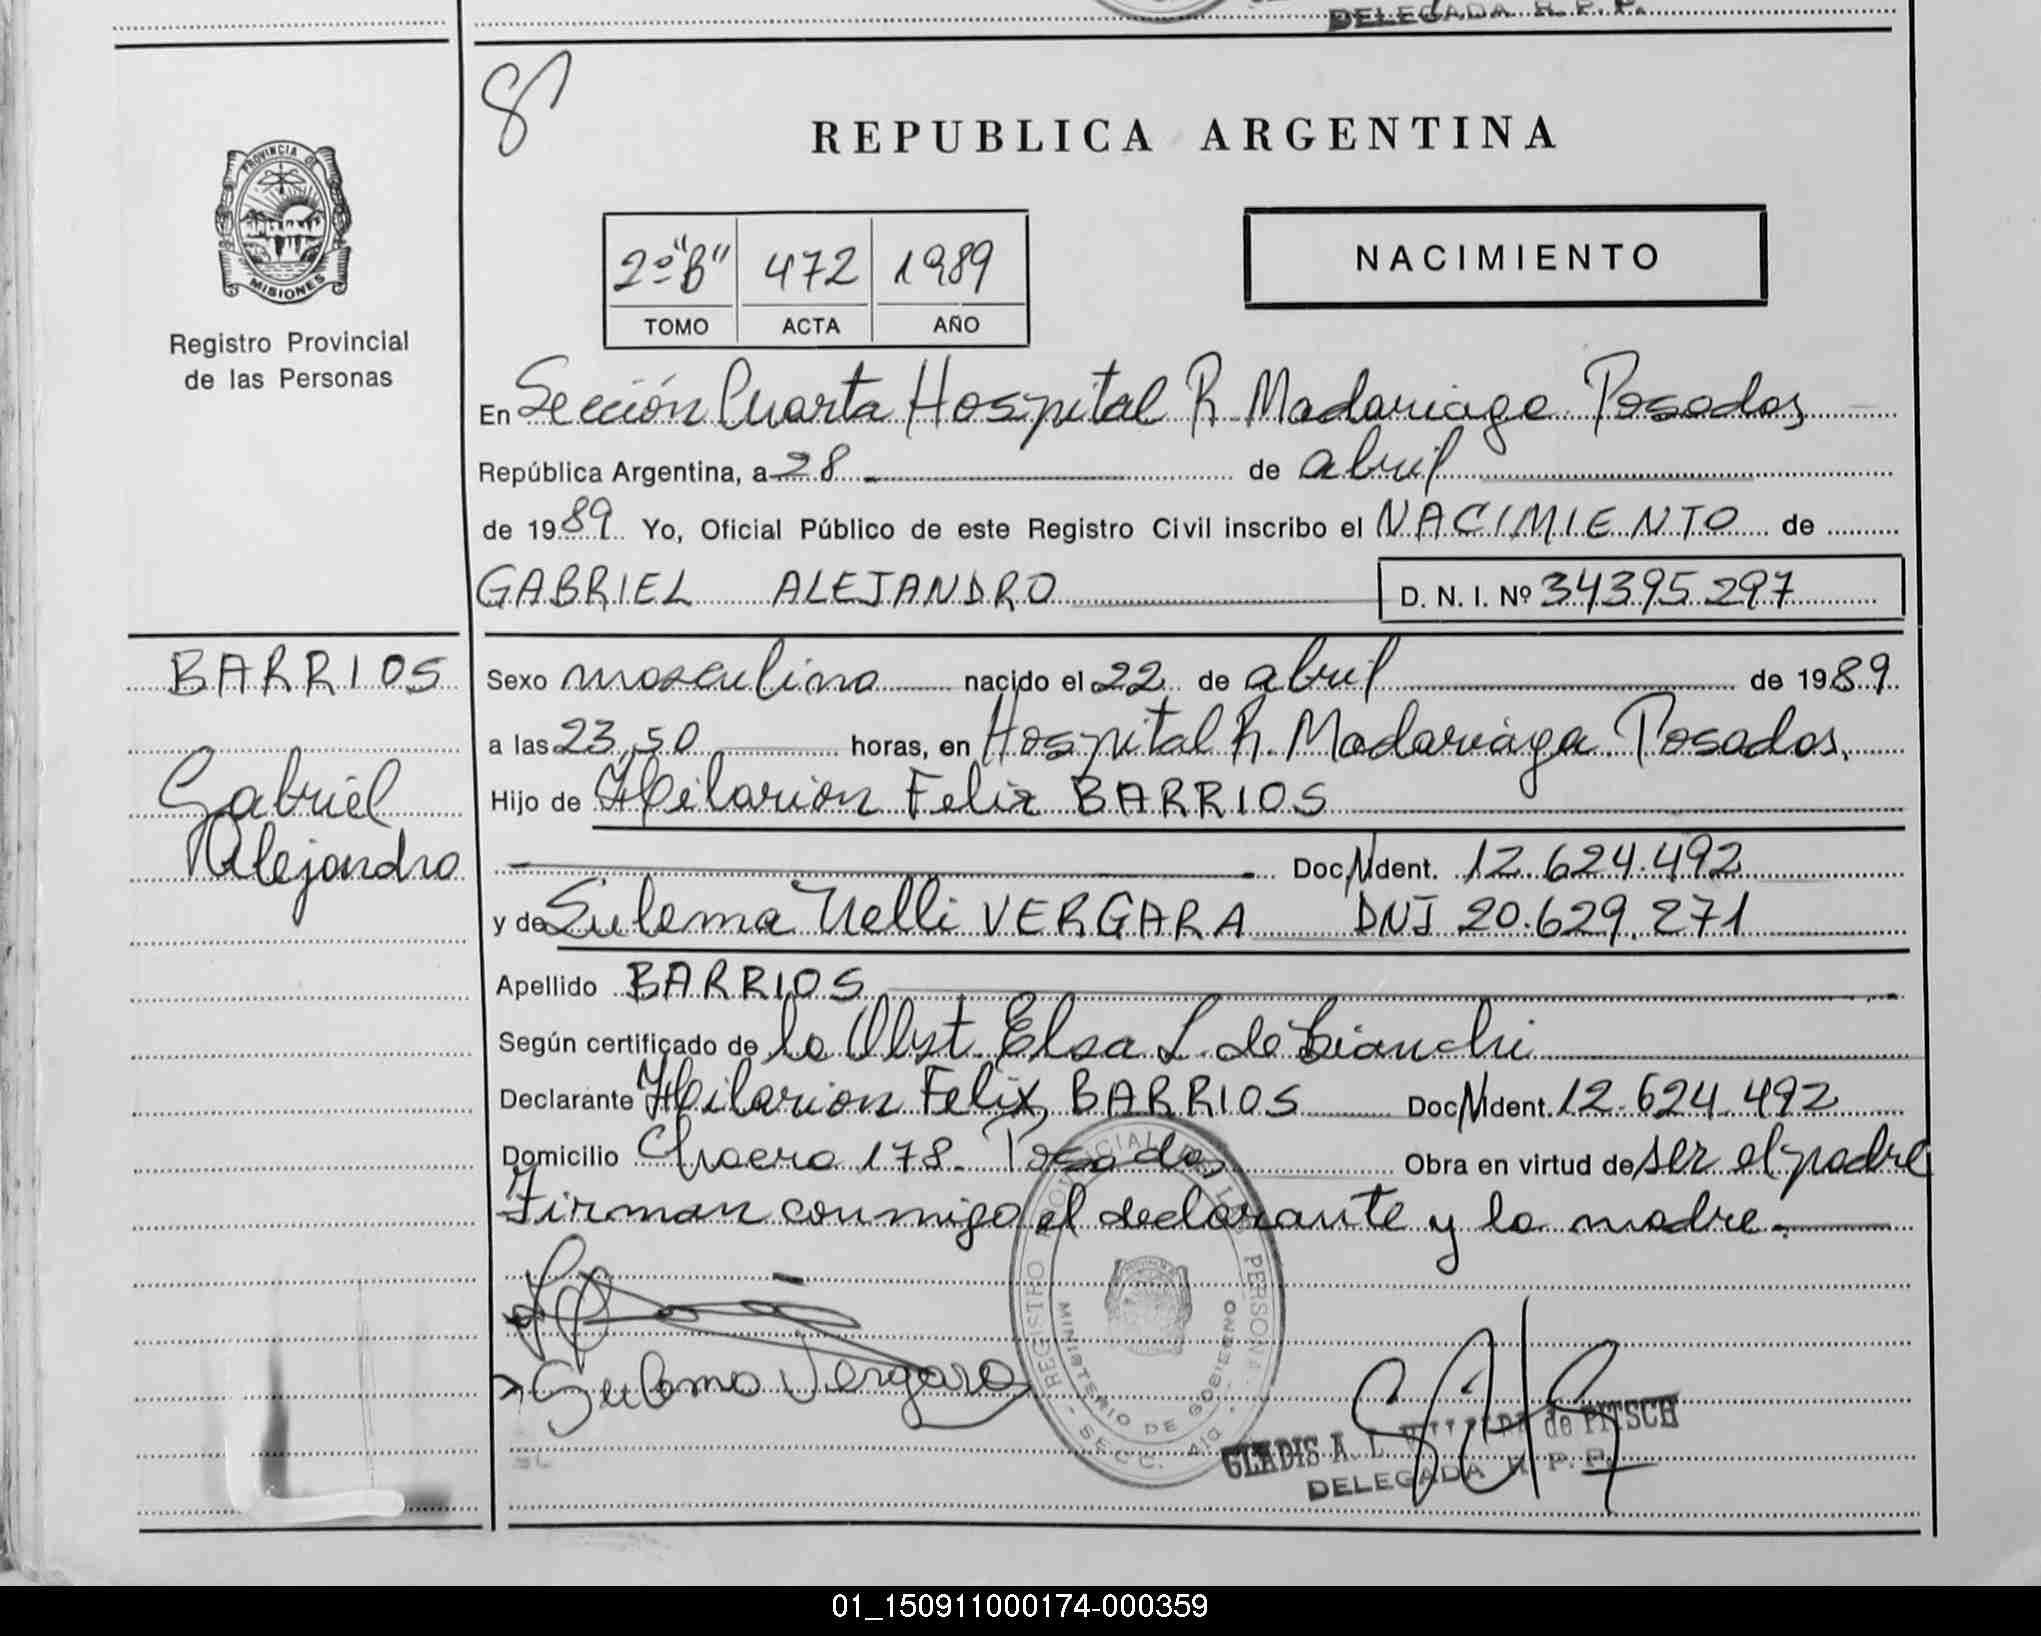 DELEGADA R. P. P.
8
REPUBLICA ARGENTINA
PROVINCIA DE
MISIONES
Registro Provincial
de las Personas
2º "B" 472 1989
TOMO ACTA AÑO
NACIMIENTO
En Sección Cuarta Hospital R. Madariaga Posadas,
República Argentina, a 28 de abril
de 1989 Yo, Oficial Público de este Registro Civil inscribo el NACIMIENTO de
GABRIEL ALEJANDRO D. N. I. Nº 34395297
BARRIOS
Gabriel
Alejandro
Sexo masculino nacido el 22 de abril de 1989
a las 23,50 horas, en Hospital R. Madariaga Posadas.
Hijo de Hilarion Felix BARRIOS
Doc. Ident. 12.624.492
y de Sulema Nelli VERGARA DNI 20.629.271
Apellido BARRIOS
Según certificado de la Obst. Elsa L. de Bianchi
Declarante Hilarion Felix BARRIOS Doc. Ident. 12.624.492
Domicilio Chaco 178. Posadas Obra en virtud de ser el padre
Firman conmigo el declarante y la madre.
Sulema Vergara
REGISTRO PROVINCIAL DE LAS PERSONAS
MINISTERIO DE GOBIERNO
SECC. 4ta
GLADIS A. L. de PITSCH
DELEGADA R. P. P.
01_150911000174-000359